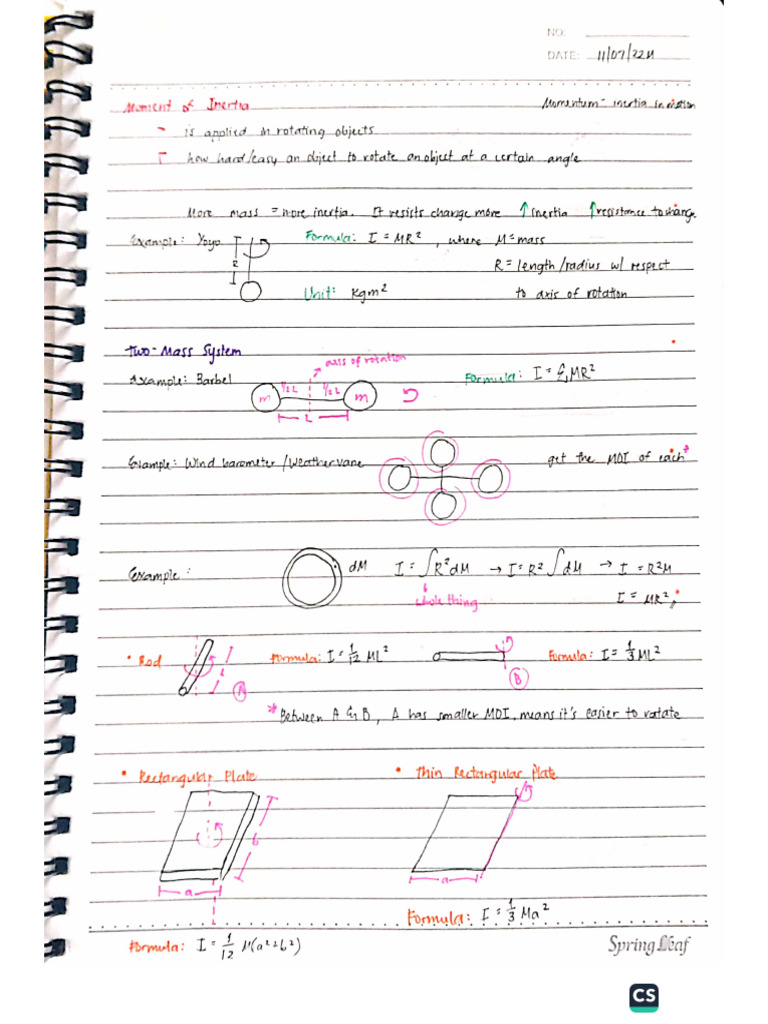 NO:
DATE: 11/07/22M
Moment of Inertia
Momentum - inertia in motion
- is applied in rotating objects
- how hard/easy an object to rotate an object at a certain angle
More mass = more inertia. It resists change more ↑inertia ↑resistance to change
Example: Yoyo R Formula: I = MR², where M = mass
R = length/radius w/ respect
Unit: Kgm² to axis of rotation
Two-Mass System
axis of rotation
Example: Barbel m ½L ½L m Formula: I = Σ MR²
L
Example: Wind barometer /Weathervane get the MOI of each*
Example: dM I = ∫R²dM → I = R² ∫dM → I = R²M
whole thing I = MR²
• Rod L A Formula: I = 1/12 ML² B Formula: I = 1/3 ML²
* Between A & B, A has smaller MOI, means it's easier to rotate
• Rectangular Plate • Thin Rectangular Plate
b
a a
Formula: I = 1/3 Ma²
Formula: I = 1/12 M(a²+b²)
Spring Leaf
CS